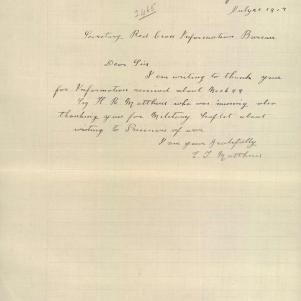 2465
July 21 191
Secretary Red Cross Information Bureau
Dear Sir
I am writing to thank you
for Information received about No 649
Cpy H. R. Matthews who was missing also
thanking you for Military Leaflet about
writing to Prisoners of war
I am yours Gratefully
E. J. Matthews